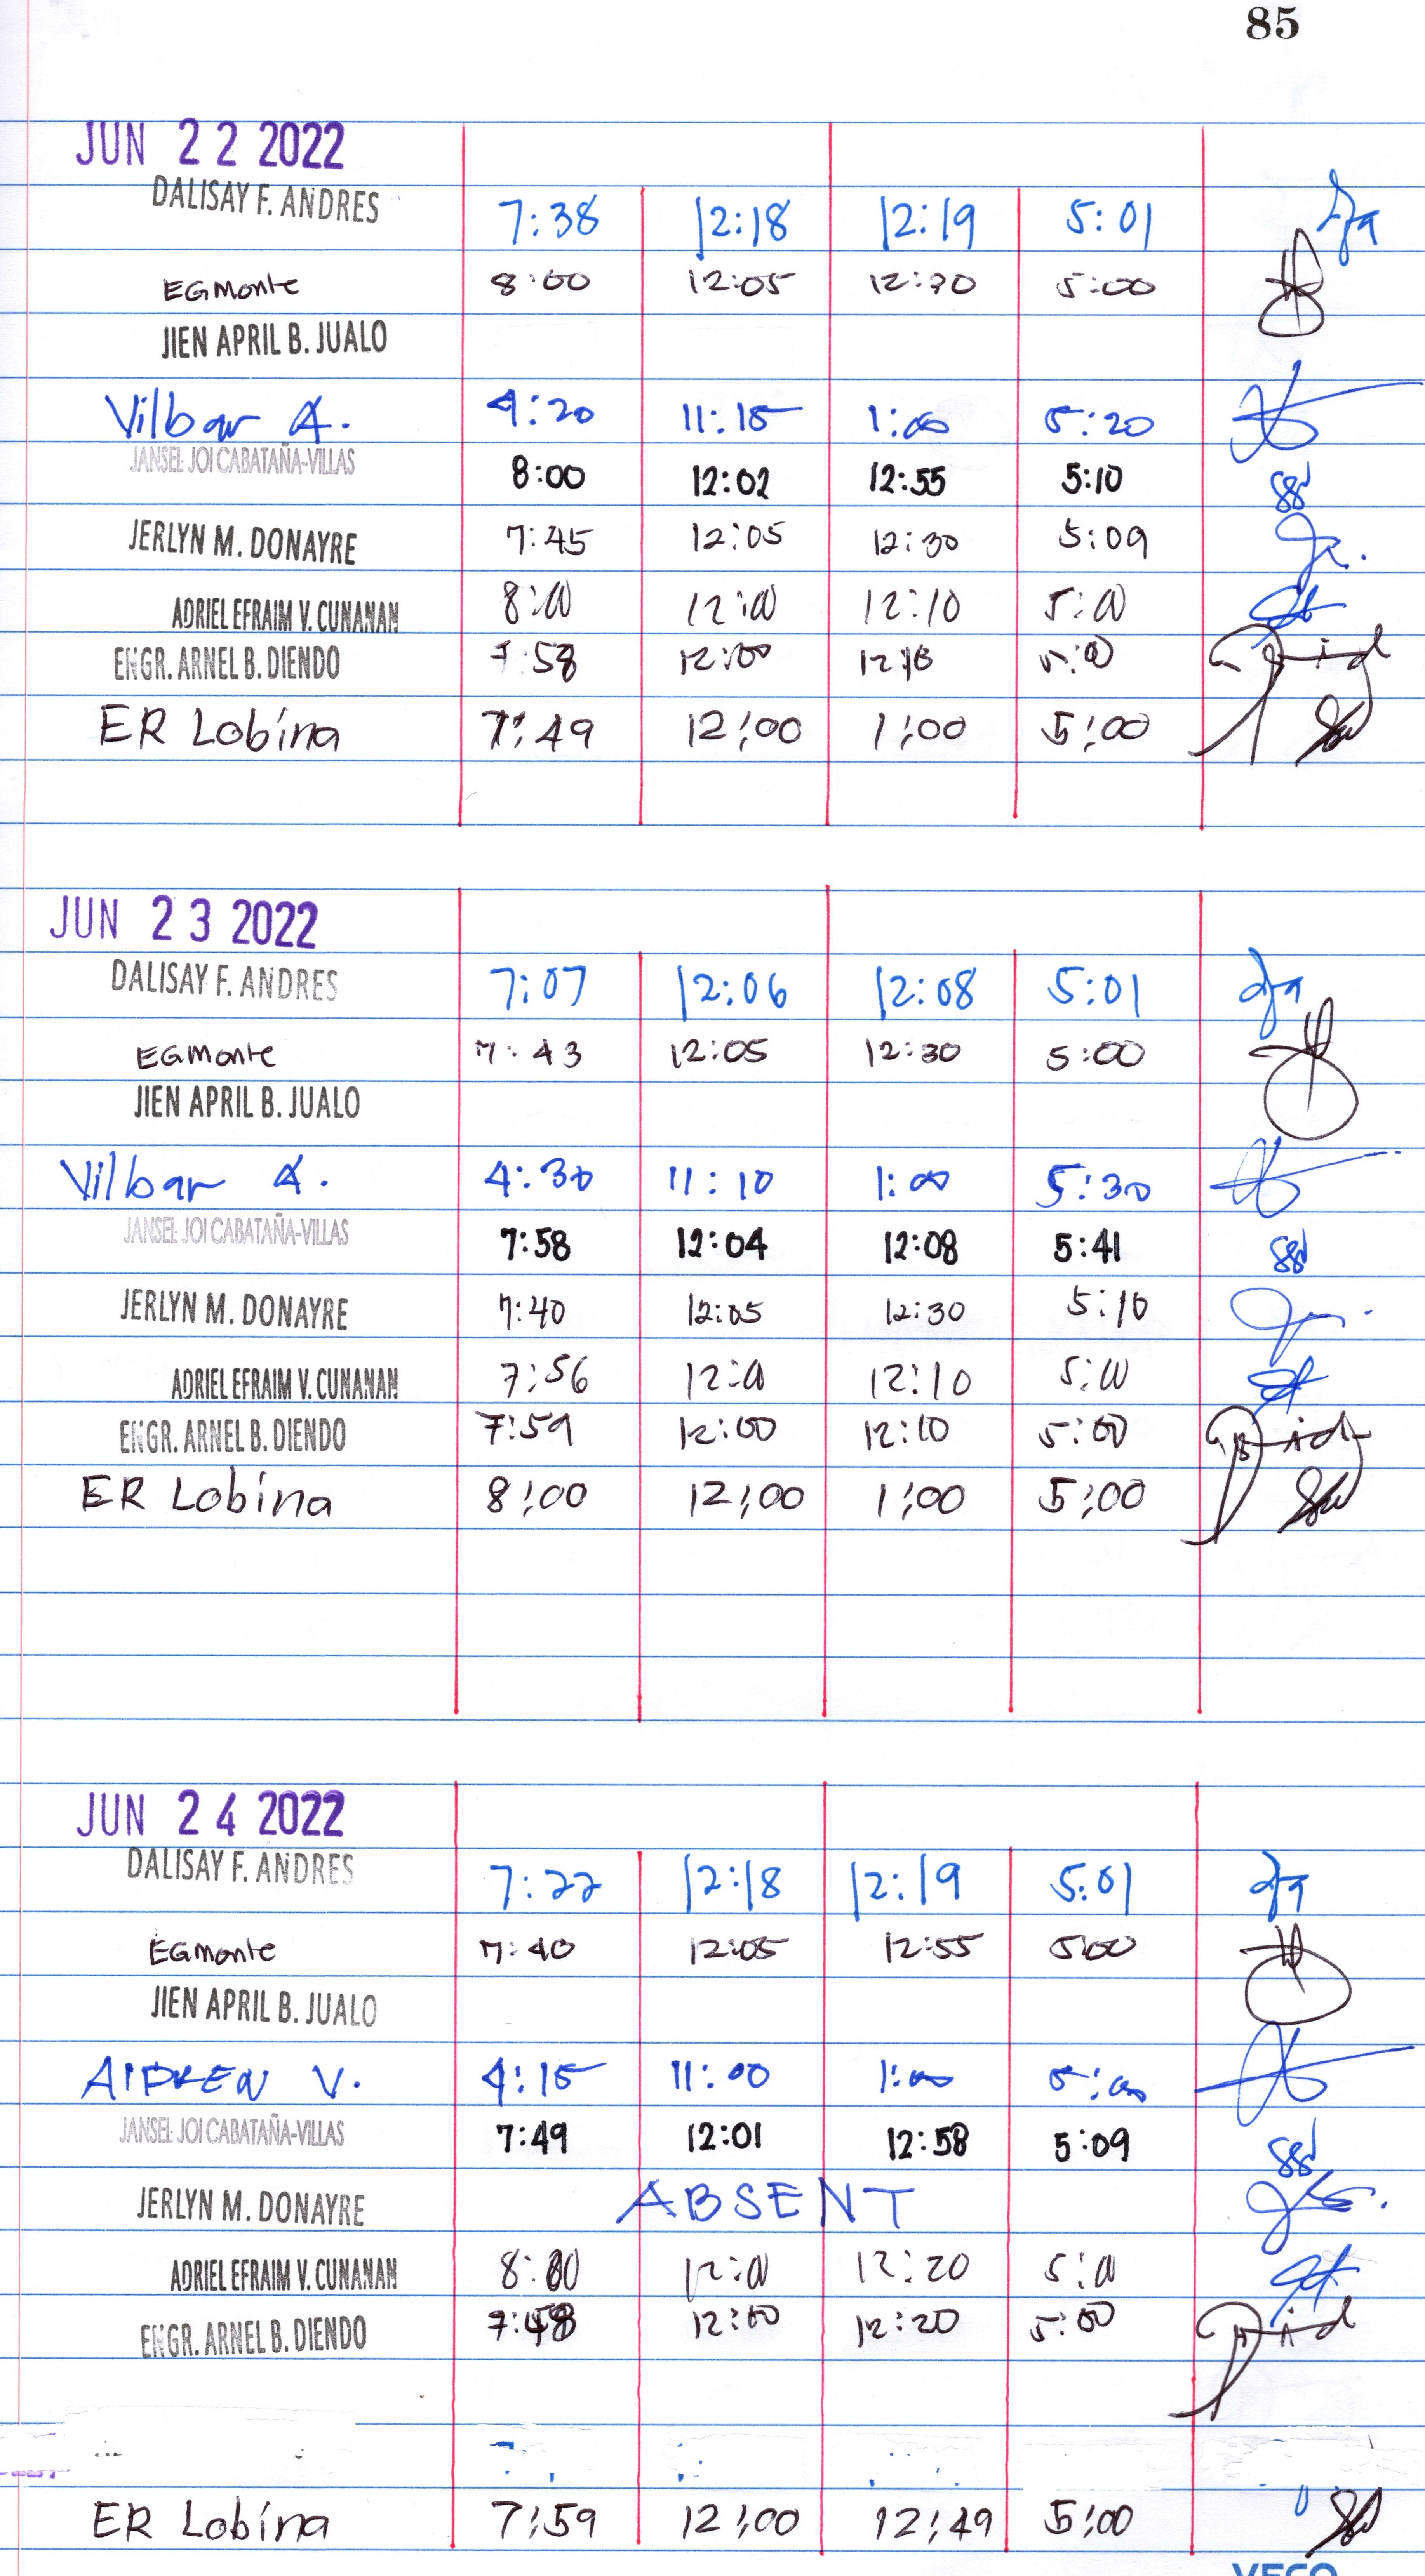 85
JUN 22 2022
DALISAY F. ANDRES 7:38 12:18 12:19 5:01
EGmonte 8:00 12:05 12:30 5:00
JIEN APRIL B. JUALO
Vilbar A. 4:20 11:15 1:00 5:20
JANSEL JOI CABATAÑA-VILLAS 8:00 12:02 12:55 5:10
JERLYN M. DONAYRE 7:45 12:05 12:30 5:09
ADRIEL EFRAIM V. CUNANAN 8:00 12:00 12:10 5:00
ENGR. ARNEL B. DIENDO 7:58 12:00 12:10 5:00
ER Lobina 7:49 12:00 1:00 5:00
JUN 23 2022
DALISAY F. ANDRES 7:07 12:06 12:08 5:01
EGmonte 7:43 12:05 12:30 5:00
JIEN APRIL B. JUALO
Vilbar A. 4:30 11:10 1:00 5:30
JANSEL JOI CABATAÑA-VILLAS 7:58 12:04 12:08 5:41
JERLYN M. DONAYRE 7:40 12:05 12:30 5:10
ADRIEL EFRAIM V. CUNANAN 7:56 12:00 12:10 5:00
ENGR. ARNEL B. DIENDO 7:59 12:00 12:10 5:00
ER Lobina 8:00 12:00 1:00 5:00
JUN 24 2022
DALISAY F. ANDRES 7:22 12:18 12:19 5:01
EGmonte 7:40 12:05 12:55 5:00
JIEN APRIL B. JUALO
V. 4:15 11:00 1:00 5:00
JANSEL JOI CABATAÑA-VILLAS 7:49 12:01 12:58 5:09
JERLYN M. DONAYRE ABSENT
ADRIEL EFRAIM V. CUNANAN 8:00 12:00 12:20 5:00
ENGR. ARNEL B. DIENDO 7:58 12:00 12:20 5:00
ER Lobina 7:59 12:00 12:49 5:00
VECO